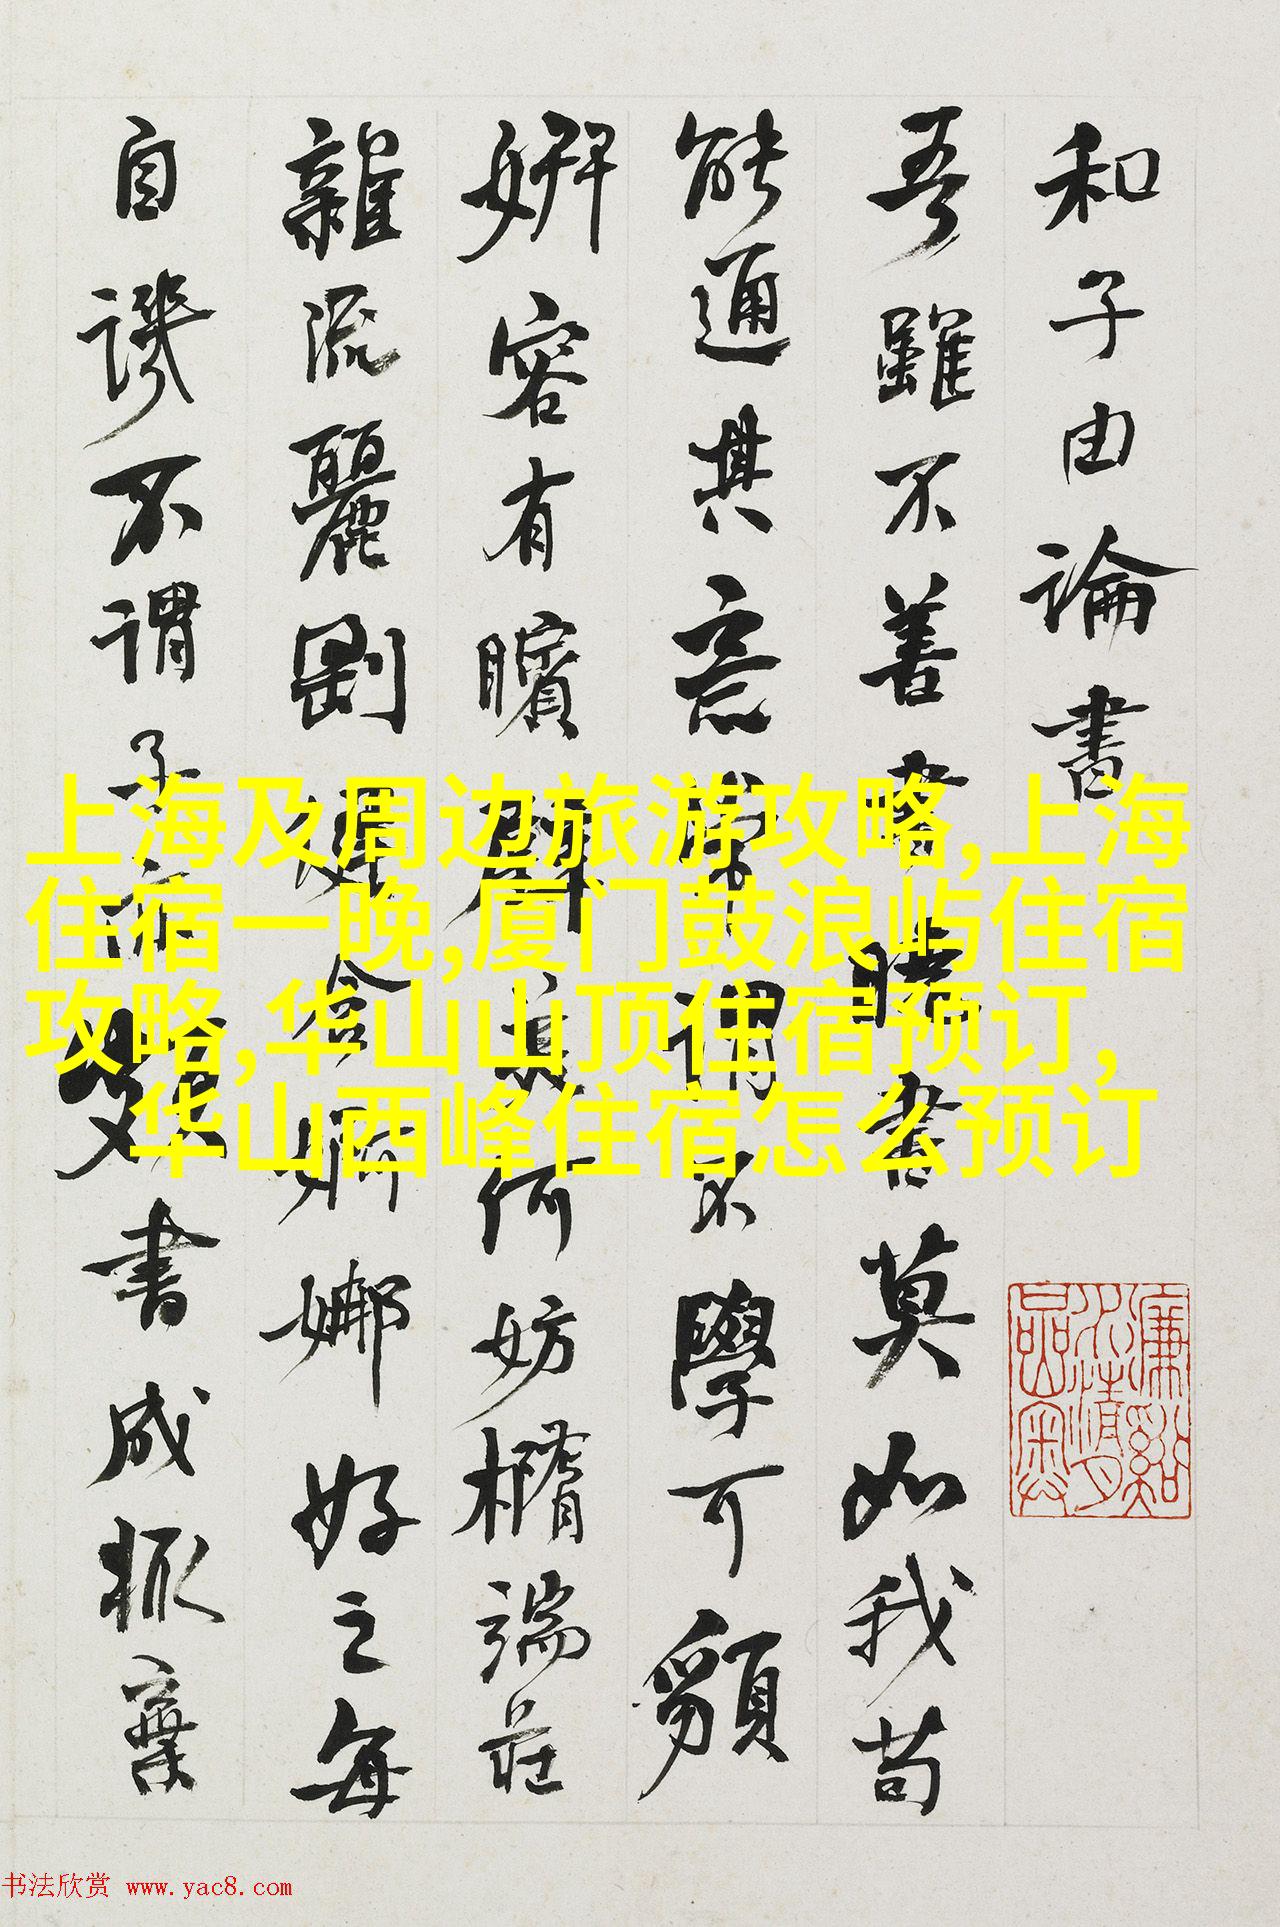 和子由論書
吾雖不善書曉書莫如我苟
能通其意常謂不學可貌
妍容有矉璧美何妨橢端莊
雜流麗剛健含婀娜好之每
自譏不謂子亦頗書成輒棄
上海及周边旅游攻略,上海
住宿一晚,厦门鼓浪屿住宿
攻略,华山山顶住宿预订,
华山西峰住宿怎么预订
书法欣赏 www.yac8.com